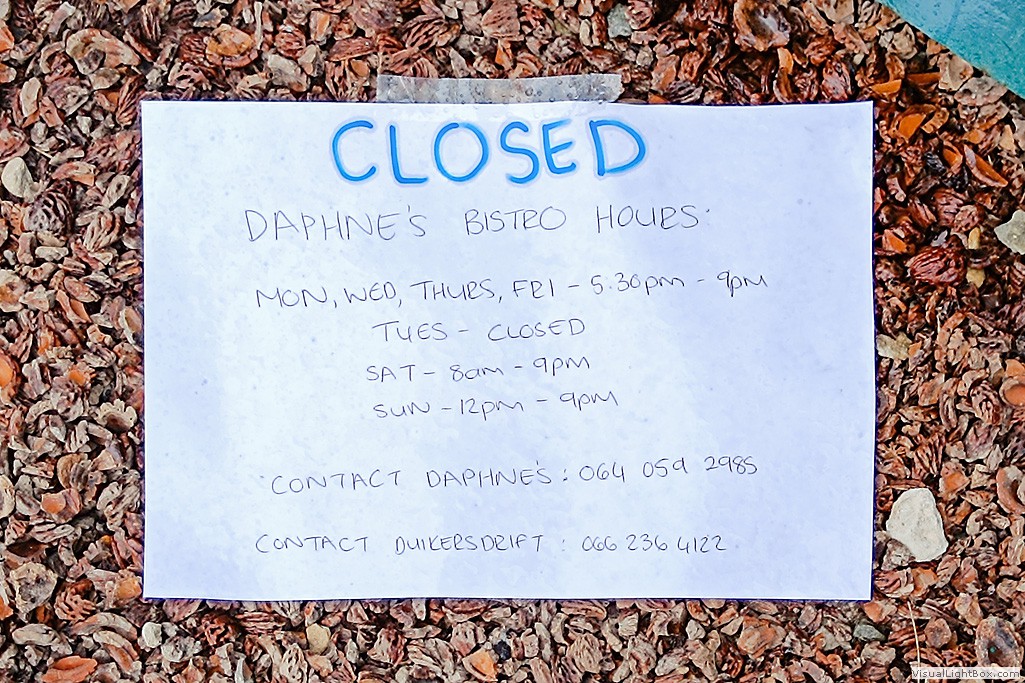 CLOSED
DAPHNE'S BISTRO HOURS.
MON, WED, THURS, FRI - 5.30pm - 9pm
TUES - CLOSED
SAT - 8am - 9pm
SUN - 12pm - 9pm
CONTACT DAPHNE'S : 064 059 2985
CONTACT DUIKERSDRIFT : 066 236 4122
VisualLightBox.com